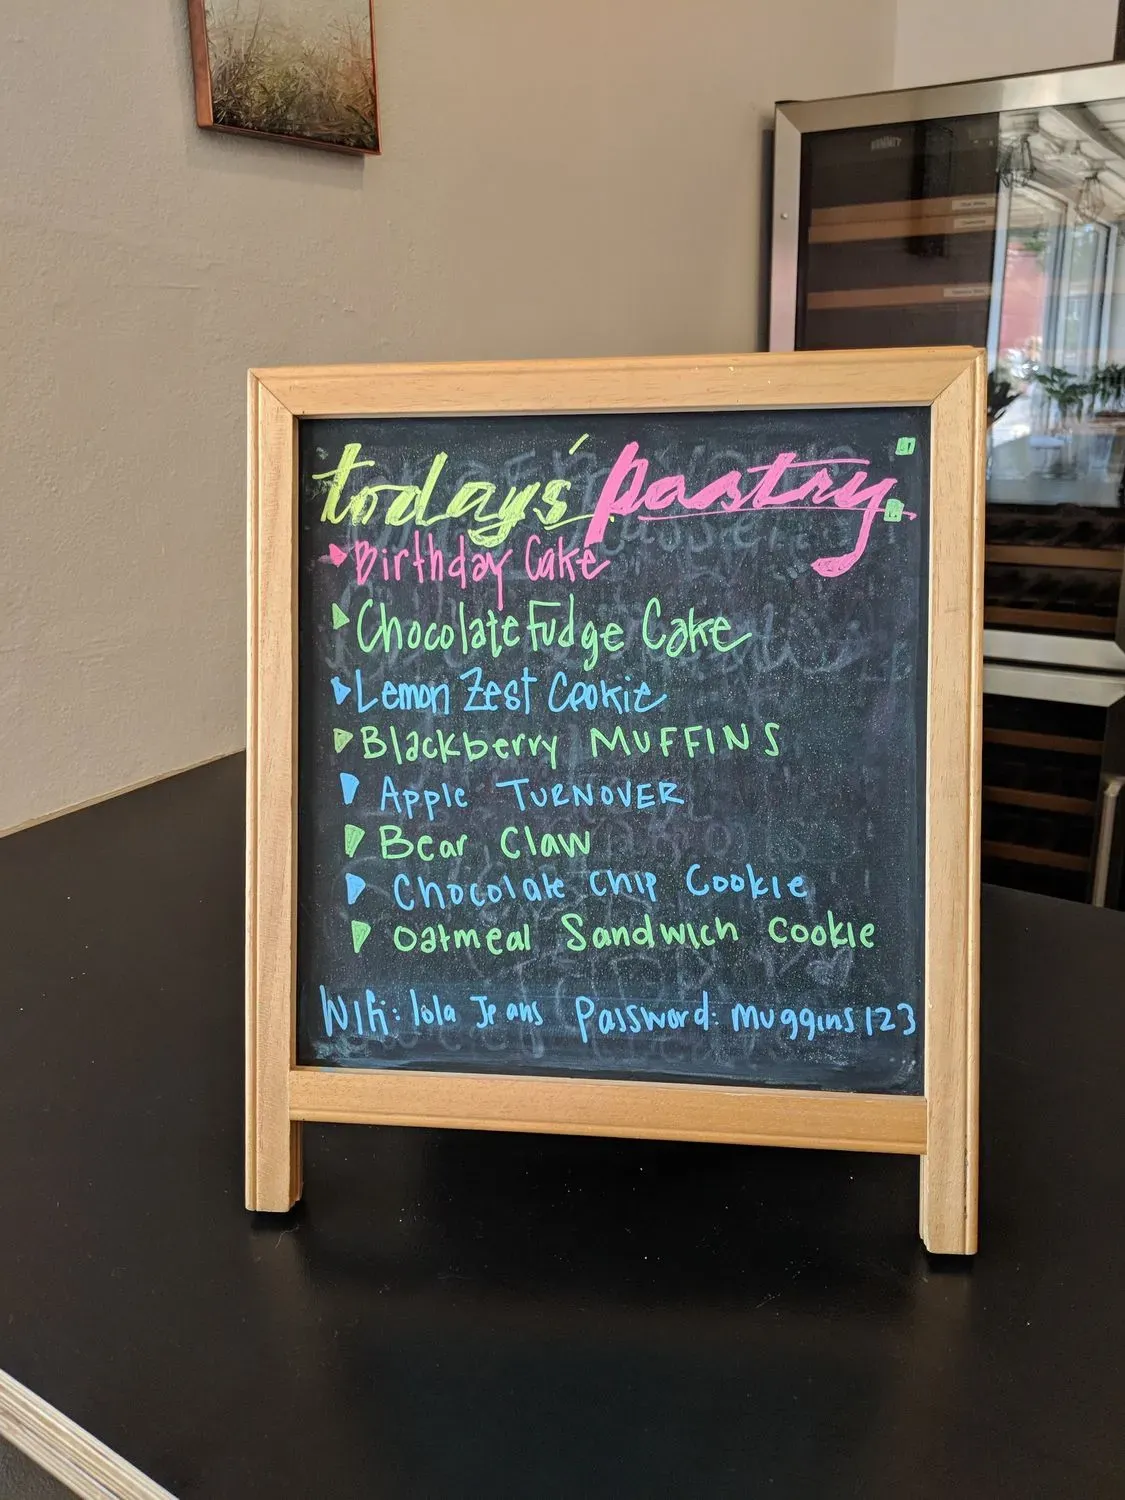 today's pastry
Birthday Cake
Chocolate Fudge Cake
Lemon Zest Cookie
Blackberry MUFFINS
Apple TURNOVER
Bear Claw
Chocolate Chip Cookie
Oatmeal Sandwich Cookie
Wifi: lola Jeans Password: muggins123